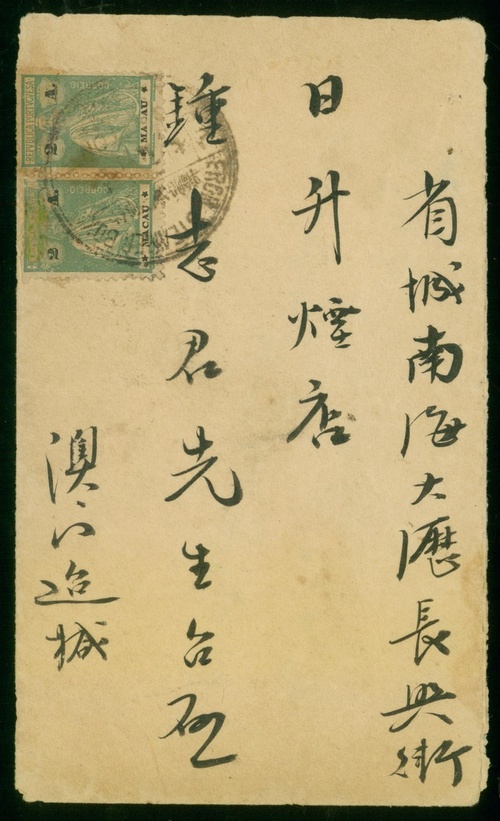 省城南海大瀝長興街
日升煙店
鍾志君先生台
澳门追械
CORREIO
2 A.
MACAU
CORREIO
2 A.
MACAU